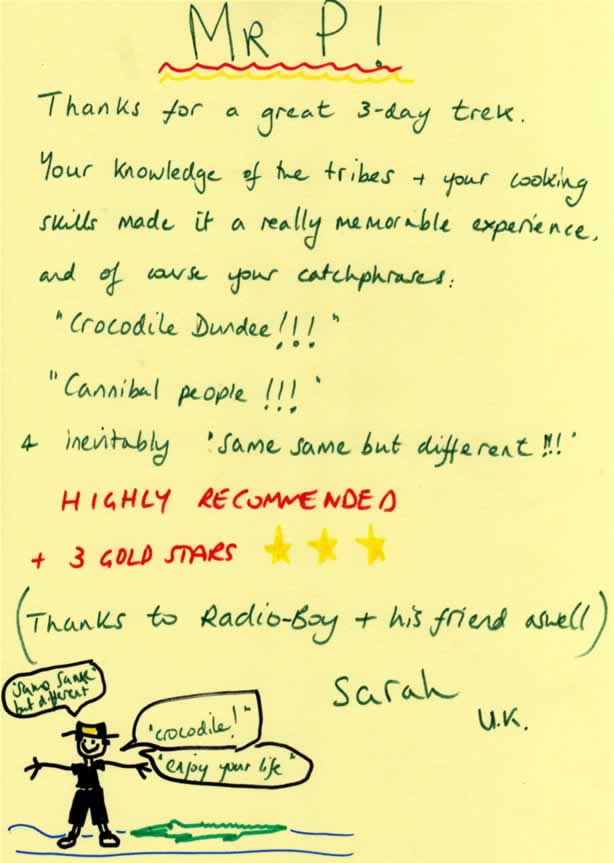 Mr P!
Thanks for a great 3-day trek.
Your knowledge of the tribes + your cooking
skills made it a really memorable experience,
and of course your catchphrases:
"Crocodile Dundee!!!"
"Cannibal people !!!"
+ inevitably 'same same but different !!!'
HIGHLY RECOMMENDED
+ 3 GOLD STARS
(Thanks to Radio-Boy + his friend aswell)
Sarah
U.K.
"Same Same"
but different
"crocodile!"
"enjoy your life"